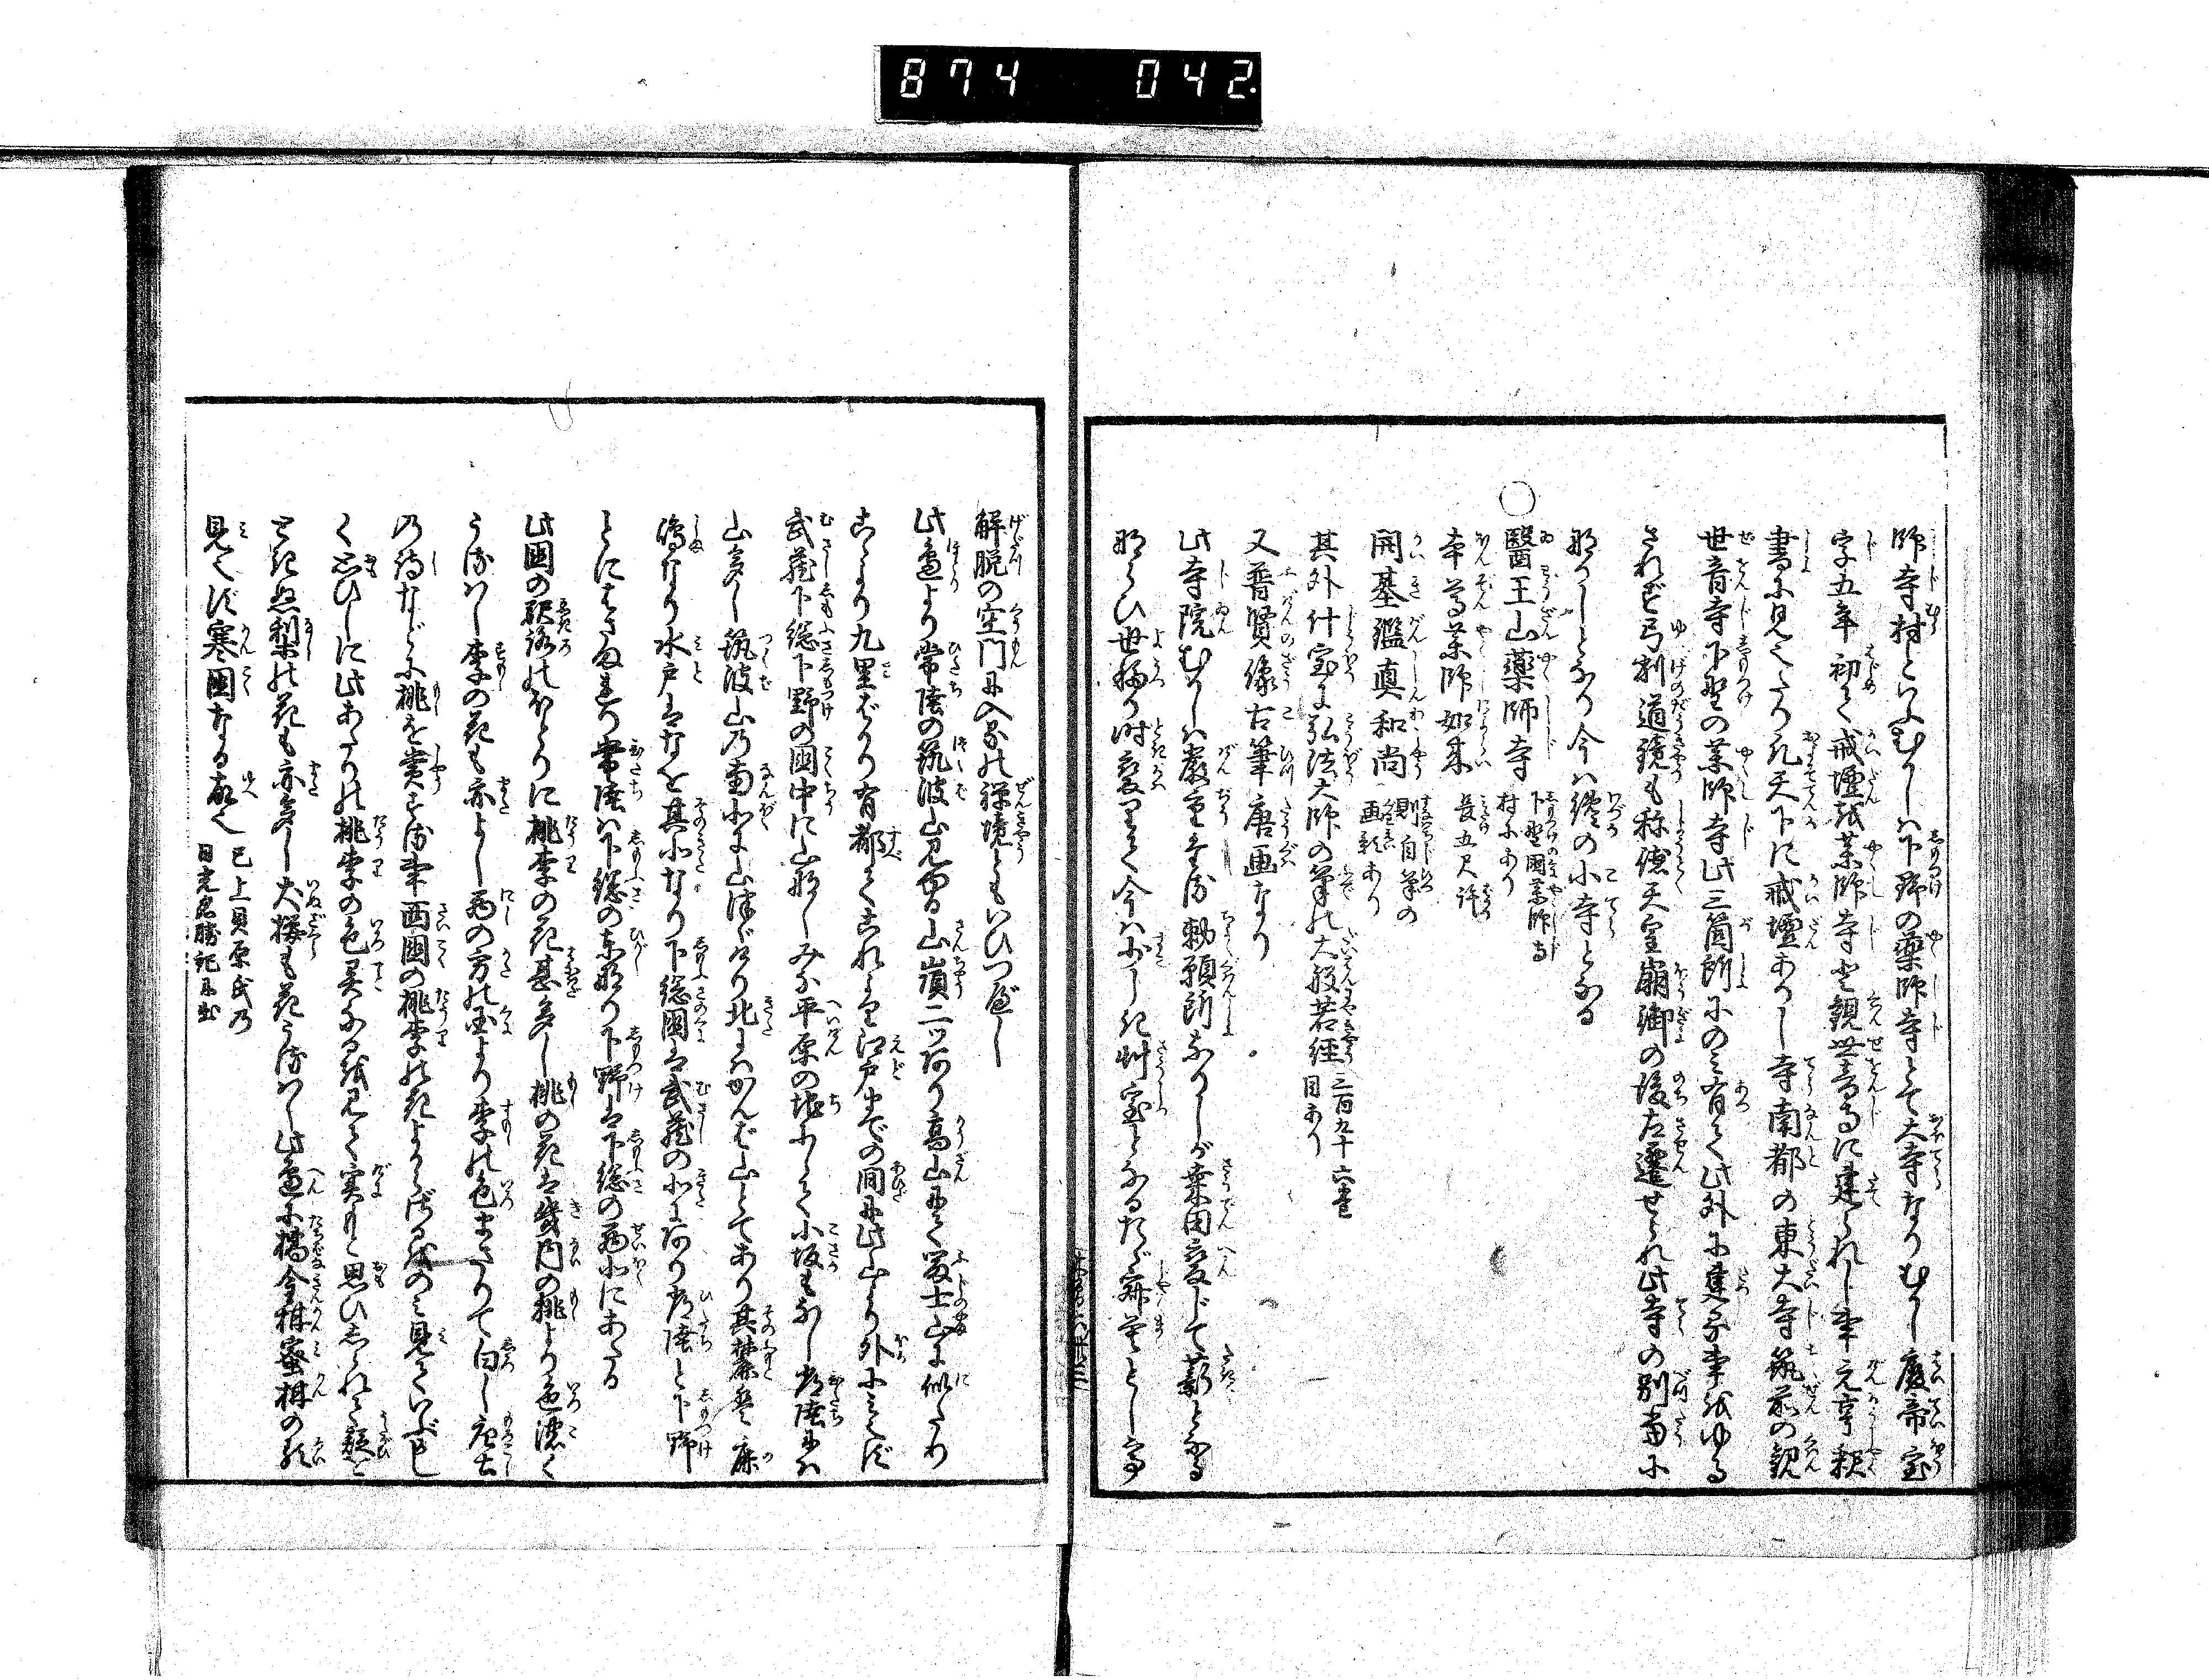 874 042
師寺村といふむかしハ下野の薬師寺とて大寺なりむかし廢帝宝
字五年初て戒壇を薬師寺と觀世音寺に建られし事元亨釈
書に見へたり凡天下に戒壇ありし寺南都の東大寺筑前の観
世音寺下野の薬師寺此三箇所にのミ有て此外に建る事をゆる
されず弓削道鏡も称徳天皇崩御の後左遷せられ此寺の別当に
なりしとなり今ハ纔の小寺となる
○醫王山薬師寺 下野国薬師寺村にあり
本尊薬師如来 長五尺許
開基鑑真和尚 則自筆の画影あり
其外什宝に弘法大師の筆の大般若経 三百九十六巻目あり
又普賢像古筆唐画なり
此寺院むかしハ嚴重なる勅願所なりしが桒田変じて薪となる
ならひ世移り時変りて今ハすこしき艸室となるたゞ寂莫として
解脱の空門に入るの禅境ともいひつべし
此邉より常陸の筑波山見ゆる山嶺二ツあり高山にて冨士山に似たり
こゝより九里ばかり有都てこれより江戸までの間に此山より外にミえず
武蔵下総下野の国中に山なしみな平原の地にして小坂もなし常陸にハ
山多し筑波山の南北に山つゞけり北にハかんば山とてあり其麓に鹿
嶋あり水戸ハなを其北なり下総国ハ武蔵の北にあり常陸と下野
とにはさまれり常陸ハ下総の東なり下野ハ下総の西北にあたる
此国の駅路のほとりに桃李の花甚多し桃の花ハ幾内の桃より色濃く
うるハし李の花も亦よし西の方の国より李の色まさりて白し唐土
の詩などに桃を賞する事西国の桃李の花よからざるをのミ見ていぶかし
く思ひしに此あたりの桃李の色異なるを見て実もと思ひしられて疑を
とき忽梨の花も亦多し犬桜も花うるハし此邉に橘金柑蜜柑の類
見へず寒国なる故へ 已上貝原氏乃日光名勝記に出